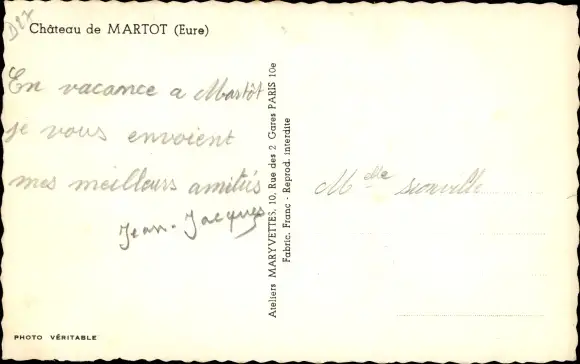 D27
Château de MARTOT (Eure)
En vacance a Martôt
je vous envoient
mes meilleurs amitiés
Jean-Jacques
Ateliers MARYVETTES, 10, Rue des 2 Gares PARIS 10e
Fabric. Franç - Reprod. interdite
Melle
PHOTO VÉRITABLE